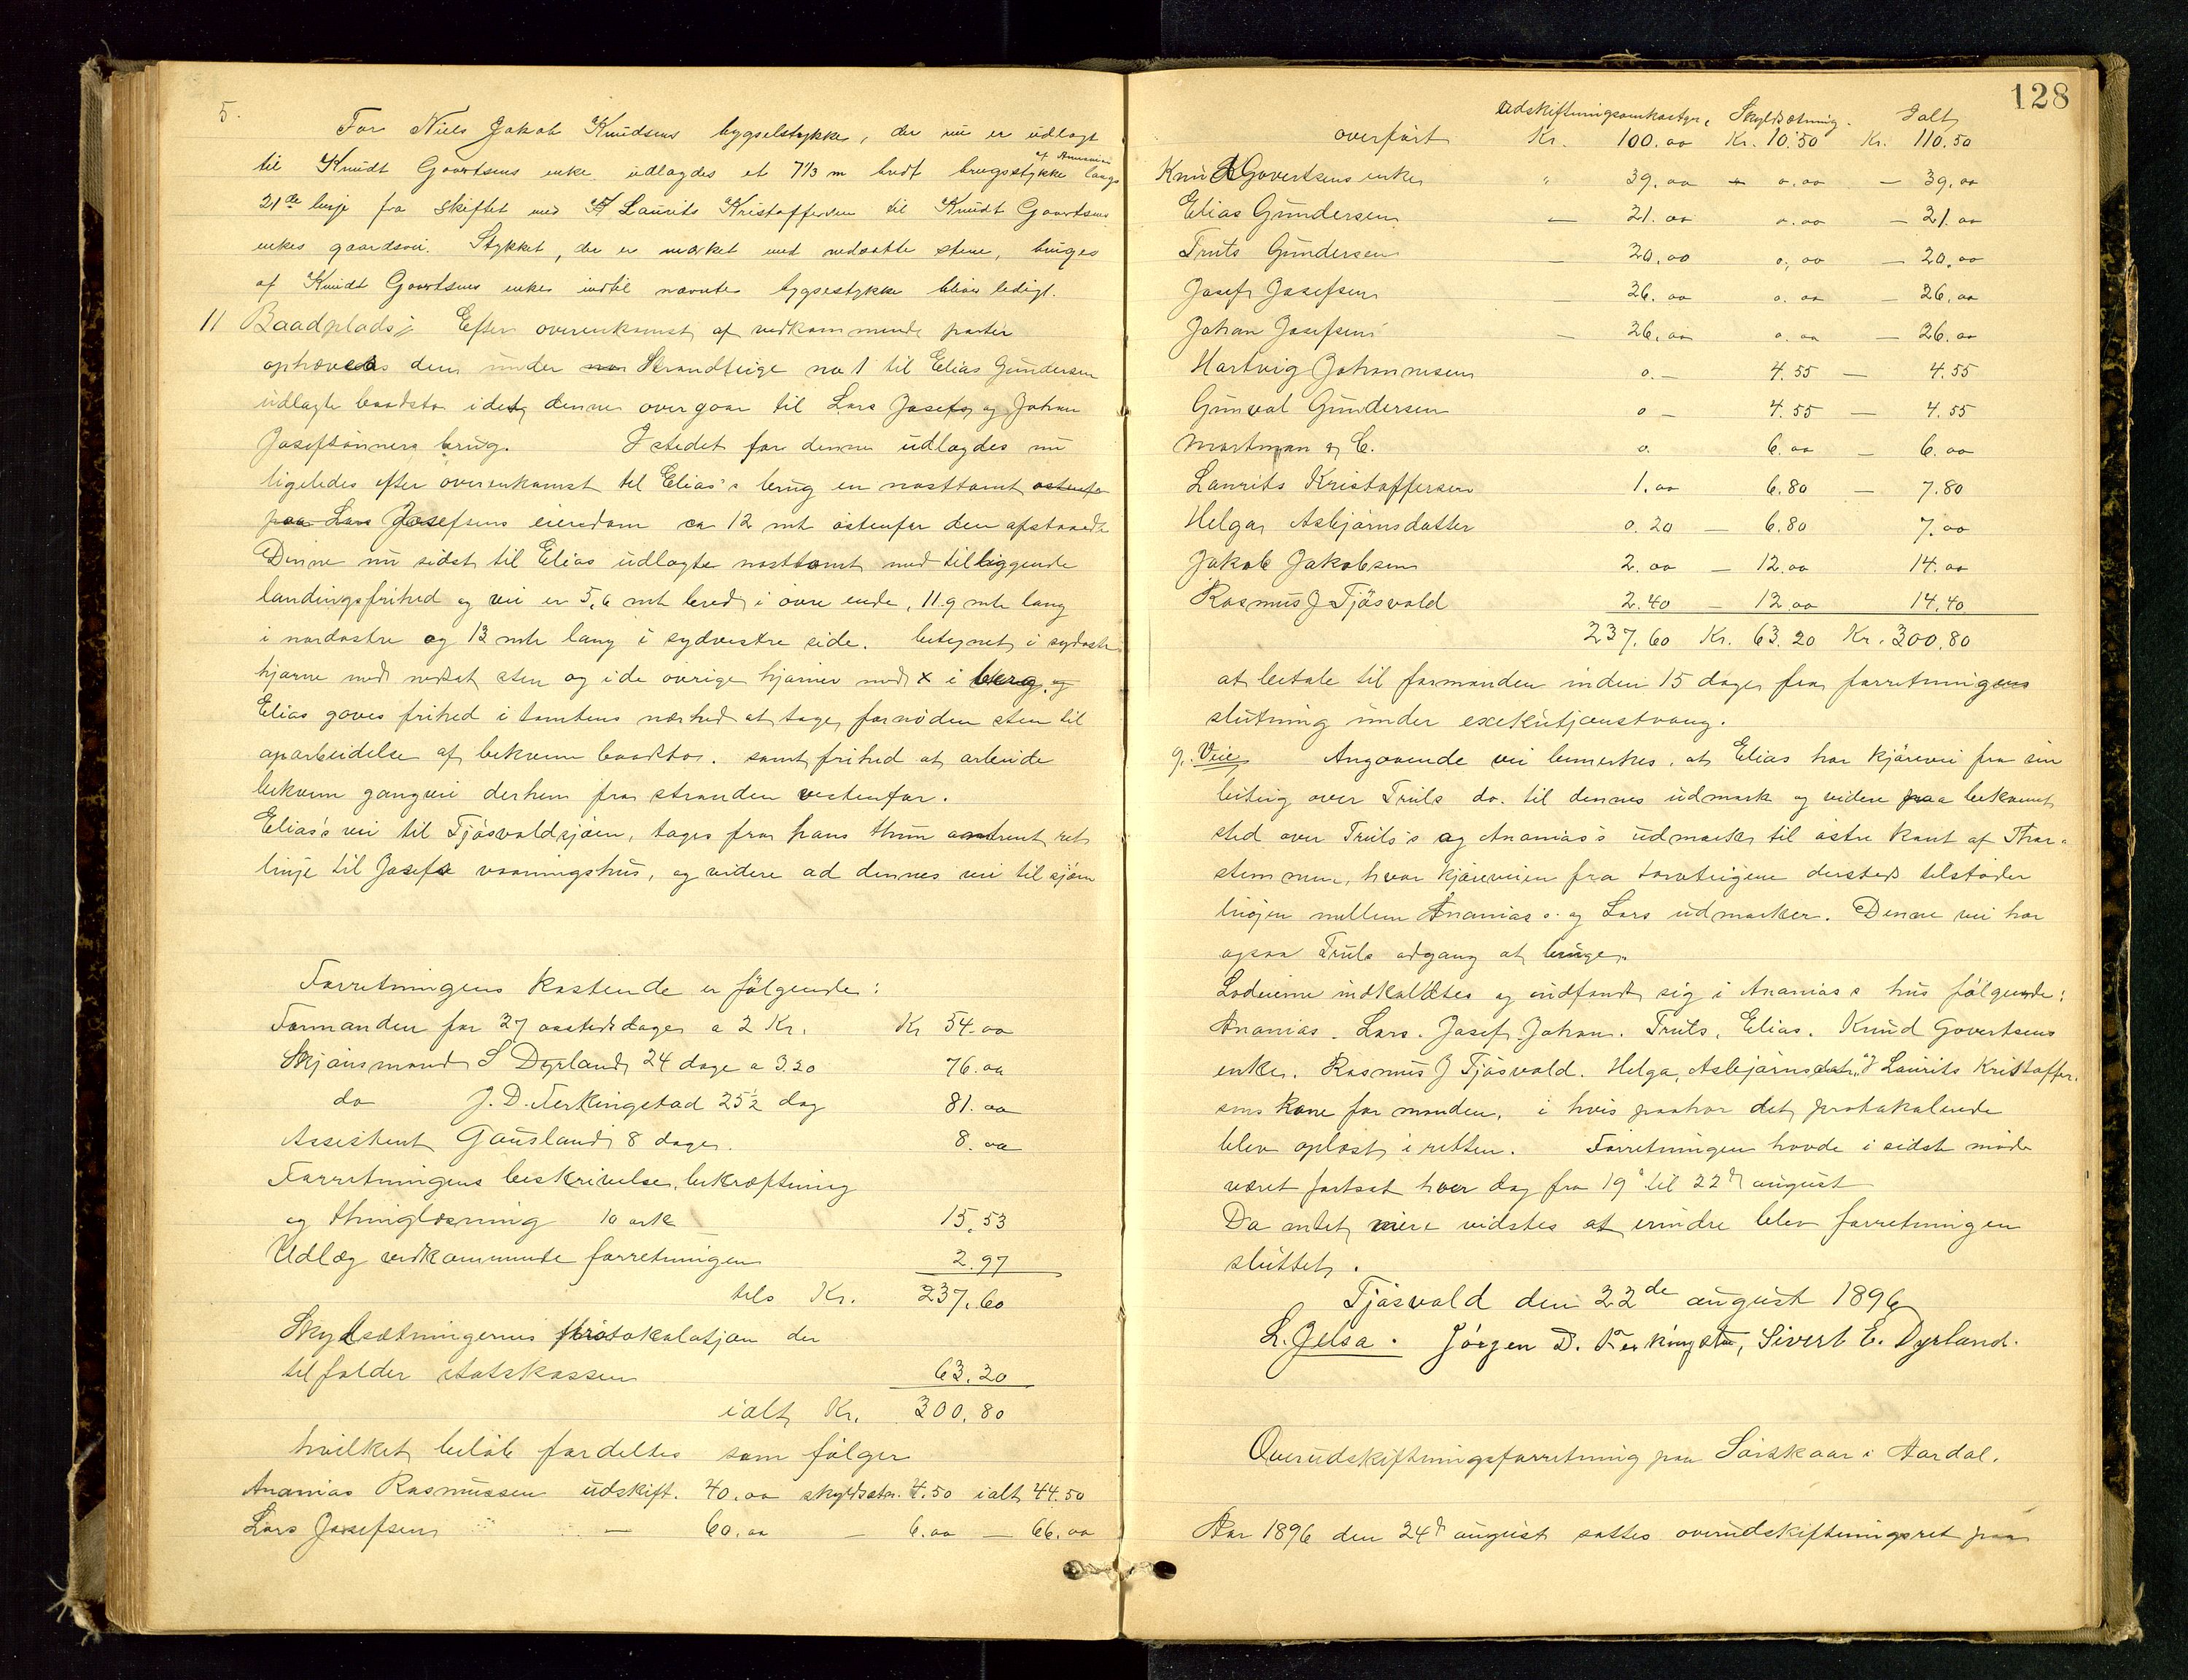 5.
For Niels Jakob Knudsens bygselstykke, der nu er udlagt
til Knudt Govertsens enke udlagdes et 7 1/3 m bredt brugsstykke af Ananias langs
21de linje fra skiftet med Laurits Kristoffersen til Knudt Govertsens
enkes gaardsvei. Stykket, der er mærket med nedsatte stene, bruges
af Knudt Govertsens enke indtil nævnte bygselstykke bliver ledigt.
11 Baadplads: Efter overenkomst af vedkommende partier
ophæves den under Strandteige no 1 til Elias Gundersen
udlagte baadstø idet denne overgaar til Lars Josefs og Johan
Josefsønners brug. I stedet for denne udlagdes nu
ligeledes efter overenkomst til Elias's brug en nosttomt østenfor
paa Lars Josefsens eiendom ca 12 mtr østenfor den afstaaede
Denne nu sidst til Elias udlagte nosttomt med tilliggende
landingsfrihed og vei er 5,6 mtr bred i øvre ende, 11.9 mtr lang
i nordøstre og 13 mtr lang i sydvestre side. betegnet i sydøstre
hjørne med nedsat sten og i de øvrige hjørner med x i berg, og
Elias gaves frihed i tomtens nærhed at tage fornøden sten til
oparbeidelse af bekvem baadstø. samt frihed at arbeide
bekvem gangvei derhen fra stranden vestenfor.
Elias's vei til Tjøsvoldsjøen, tages fra hans thun omtrent ret
linje til Josefs vaaningshus, og videre ad dennes vei til sjøen
Forretningens kostende er følgende:
Formanden for 27 aastedsdage a 2 Kr. Kr 54.00
Skjønsmand S Dyrland 24 dage a 3.20 76.00
do J. D. Ferkingstad 25 1/2 dag 81.00
Assistent Gausland 8 dage. 8.00
Forretningens beskrivelse, bekræftning
og thinglæsning 10 ark 15.53
Udlæg vedkommende forretningen 2.97
tils Kr. 237.60
Skyldsætningernes protokolatjon der
tilfalder statskassen 63.20
ialt Kr. 300.80
hvilket beløb fordeltes som følger
Ananias Rasmussen udskift. 40.00 skyldsætn. 4.50 ialt 44.50
Lars Josefsen — 60.00 — 6.00 — 66.00
128
Udskiftningsomkostgr. Skyldsætning. Ialt
overført Kr. 100.00 Kr. 10.50 Kr. 110.50
Knud Govertsens enke " 39.00 0.00 — 39.00
Elias Gundersen — 21.00 0.00 — 21.00
Truls Gundersen — 20.00 0.00 — 20.00
Josef Josefsen — 26.00 0.00 — 26.00
Johan Josefsen — 26.00 0.00 — 26.00
Hartvig Johannesen 0.— 4.55 — 4.55
Gunval Gundersen 0 — 4.55 — 4.55
Mortman & C. 0. 6.00 — 6.00
Laurits Kristoffersen 1.00 6.80 — 7.80
Helga Asbjørnsdatter 0.20 — 6.80 7.00
Jakob Jakobsen 2.00 — 12.00 14.00
Rasmus J Tjøsvold 2.40 — 12.00 14.40
237.60 Kr. 63.20 Kr. 300.80
at betale til formanden inden 15 dage fra forretningens
slutning under exekutjonstvang.
9. Veie Angaaende vei bemerkes, at Elias har kjørevei fra sin
beiteig over Truls do. til dennes udmark og videre paa bekvemt
sted over Truls's og Ananias's udmarke til østre kant af Thor-
stemmen, hvor kjøreveien fra torvteigene dersteds tilstøder
linjen mellem Ananias s. og Lars udmarker. Denne vei har
ogsaa Truls adgang at bruge.
Lodeierne indkaldtes og indfandt sig i Ananias s hus følgende:
Ananias. Lars. Josef. Johan. Truls. Elias. Knud Govertsens
enke. Rasmus J Tjøsvold. Helga Asbjørnsdatr. & Laurits Kristoffer-
sens kone for manden, i hvis paahør det protokolerede
blev oplæst i retten. Forretningen havde i sidste møde
været fortsat hver dag fra 19de til 22de august
Da intet mere vidstes at erindre blev forretningen
sluttet.
Tjøsvold den 22de august 1896
L. Jelsa. Jørgen D. Ferkingsta, Sivert E. Dyrland.
Overudskiftningsforretning paa Sørskaar i Aardal.
Aar 1896 den 24de august sattes overudskiftningsret paa